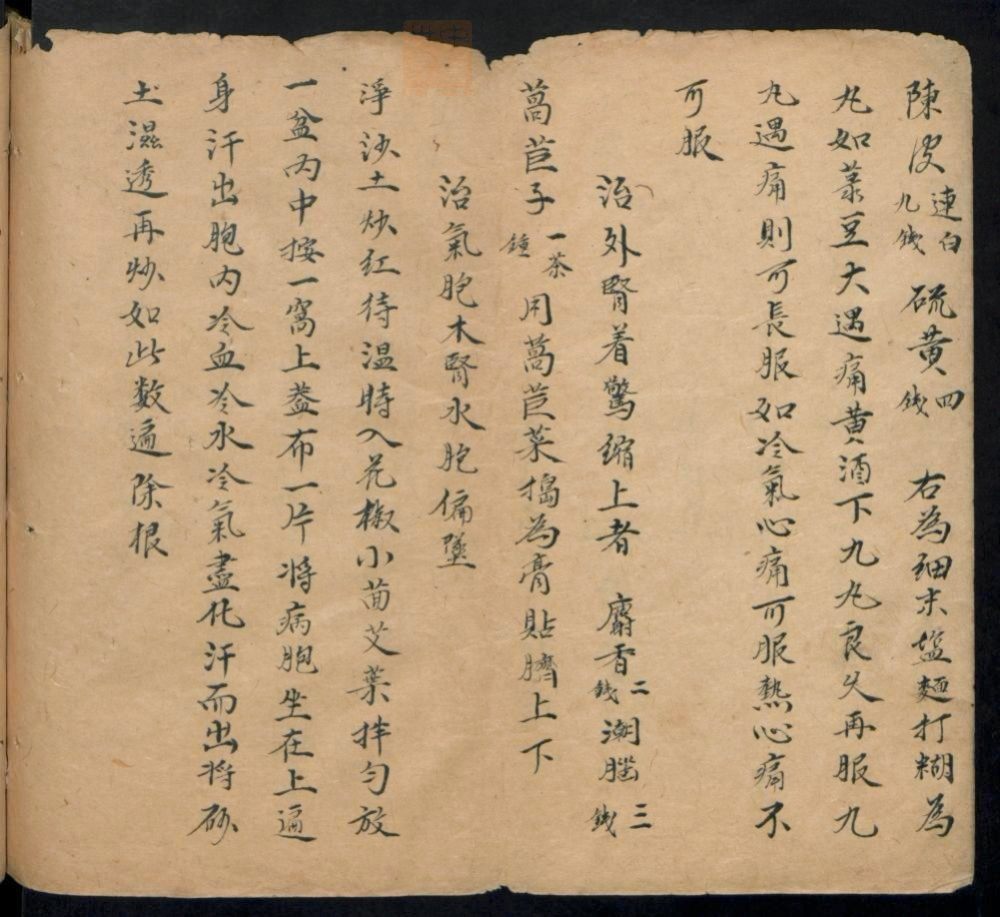 陳皮連白九錢硫黄四錢 右為細末塩麵打糊為
丸如菉豆大遇痛黄酒下九丸良久再服九
丸遇痛則可長服如冷氣心痛可服熱心痛不
可服
治外腎着驚縮上者 麝香二錢潮腦三錢
萵苣子一茶鍾用萵苣菜搗為膏貼臍上下
治氣胞木腎水胞偏墜
淨沙土炒紅待温時入花椒小茴艾葉拌匀放
一盆內中按一窩上蓋布一片將病胞坐在上遍
身汗出胞内冷血冷水冷氣盡化汗而出將砂
土濕透再炒如此数遍除根